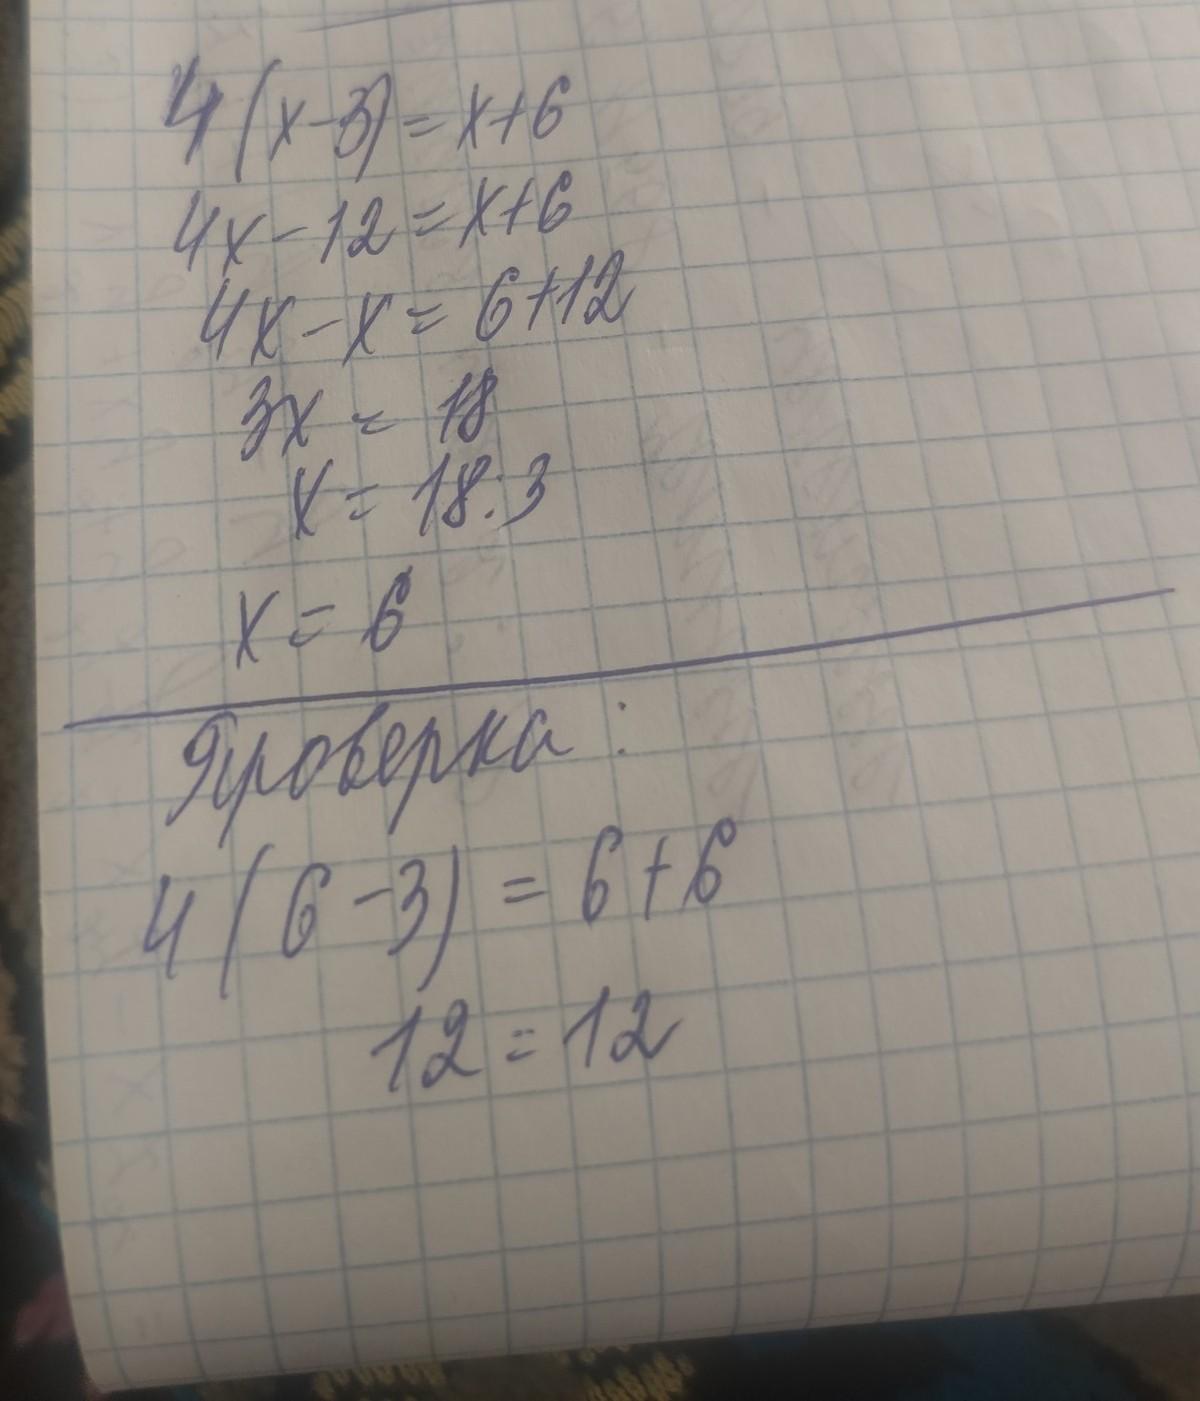 4(x-3)=x+6
4x-12=x+6
4x-x=6+12
3x=18
x=18:3
x=6
Проверка:
4(6-3)=6+6
12=12